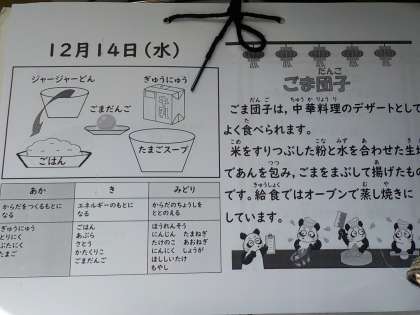 12月14日(水)
ジャージャーどん
ぎゅうにゅう
ごまだんご
ごはん
たまごスープ
あか
き
みどり
からだをつくるもとに
なる
エネルギーのもとに
なる
からだのちょうしを
ととのえる
ぎゅうにゅう
とりにく
ぶたにく
たまご
ごはん
あぶら
さとう
かたくりこ
ごまだんご
ほうれんそう
にんじん たまねぎ
たけのこ あおねぎ
にんにく しょうが
ほししいたけ
もやし
だんご
ごま団子
ごま団子は、中華料理のデザートとして
よく食べられます。
米をすりつぶした粉と水を合わせた生
であんを包み、ごまをまぶして揚げたもの
です。給食ではオーブンで蒸し焼きに
しています。